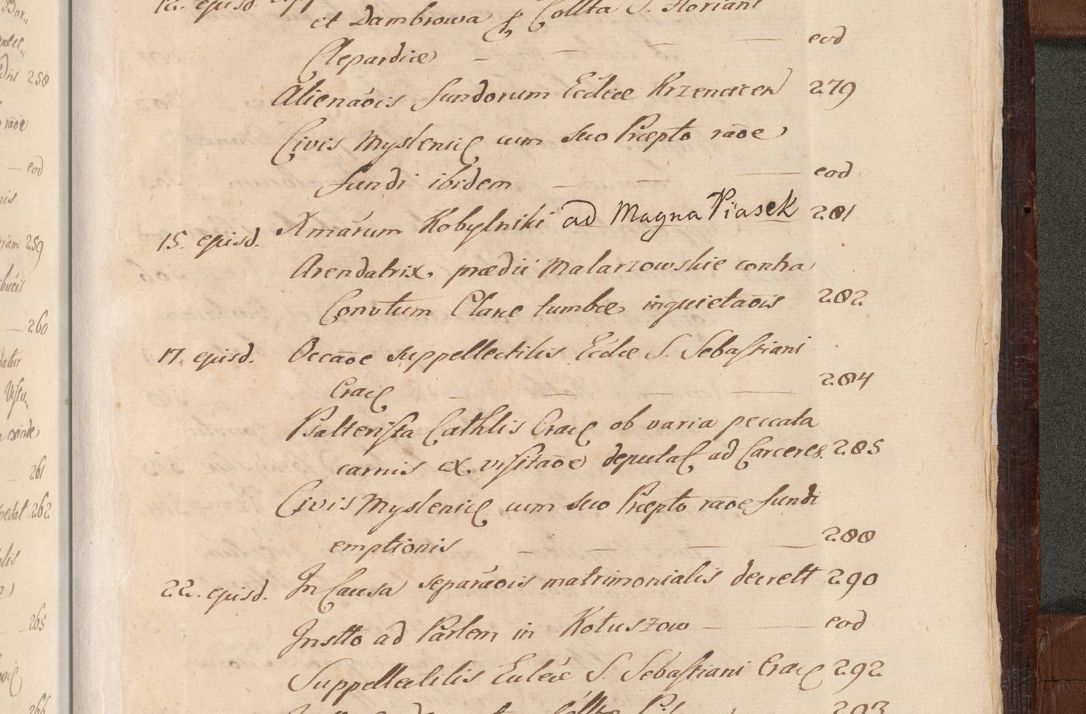 et Dambrowa ꝑ Collta S. Floriani
Clepardiæ — — — eod
Alienãois fundorum Eccleæ Krzencicen 279
Civis Myslenic cum suo Præpto raõe
fundi ibidem — — — eod
15. ejusd. Amarum Kobylniki ad Magna Piasek 281
Arendatrix prædii Malarzowskie contra
Convtum Claræ tumbæ inquietaõis 282
17. ejusd. Occaõe suppellectilis Eccleæ S. Sebastiani
Crac — — — 284
Psalterista Cathlis Crac ob varia peccata
carnis ex visitaõe deputat ad Carceres 285
Civis Myslenic cum suo Præpto raõe fundi
emptionis — — — 288
22. ejusd. In Causa separãois matrimonialis decrett 290
Instto ad Parlem in Kotuszow — — eod
Suppellectilis Eccleæ S. Sebastiani Crac 292
293
258
eod
259
260
261
262
265
266